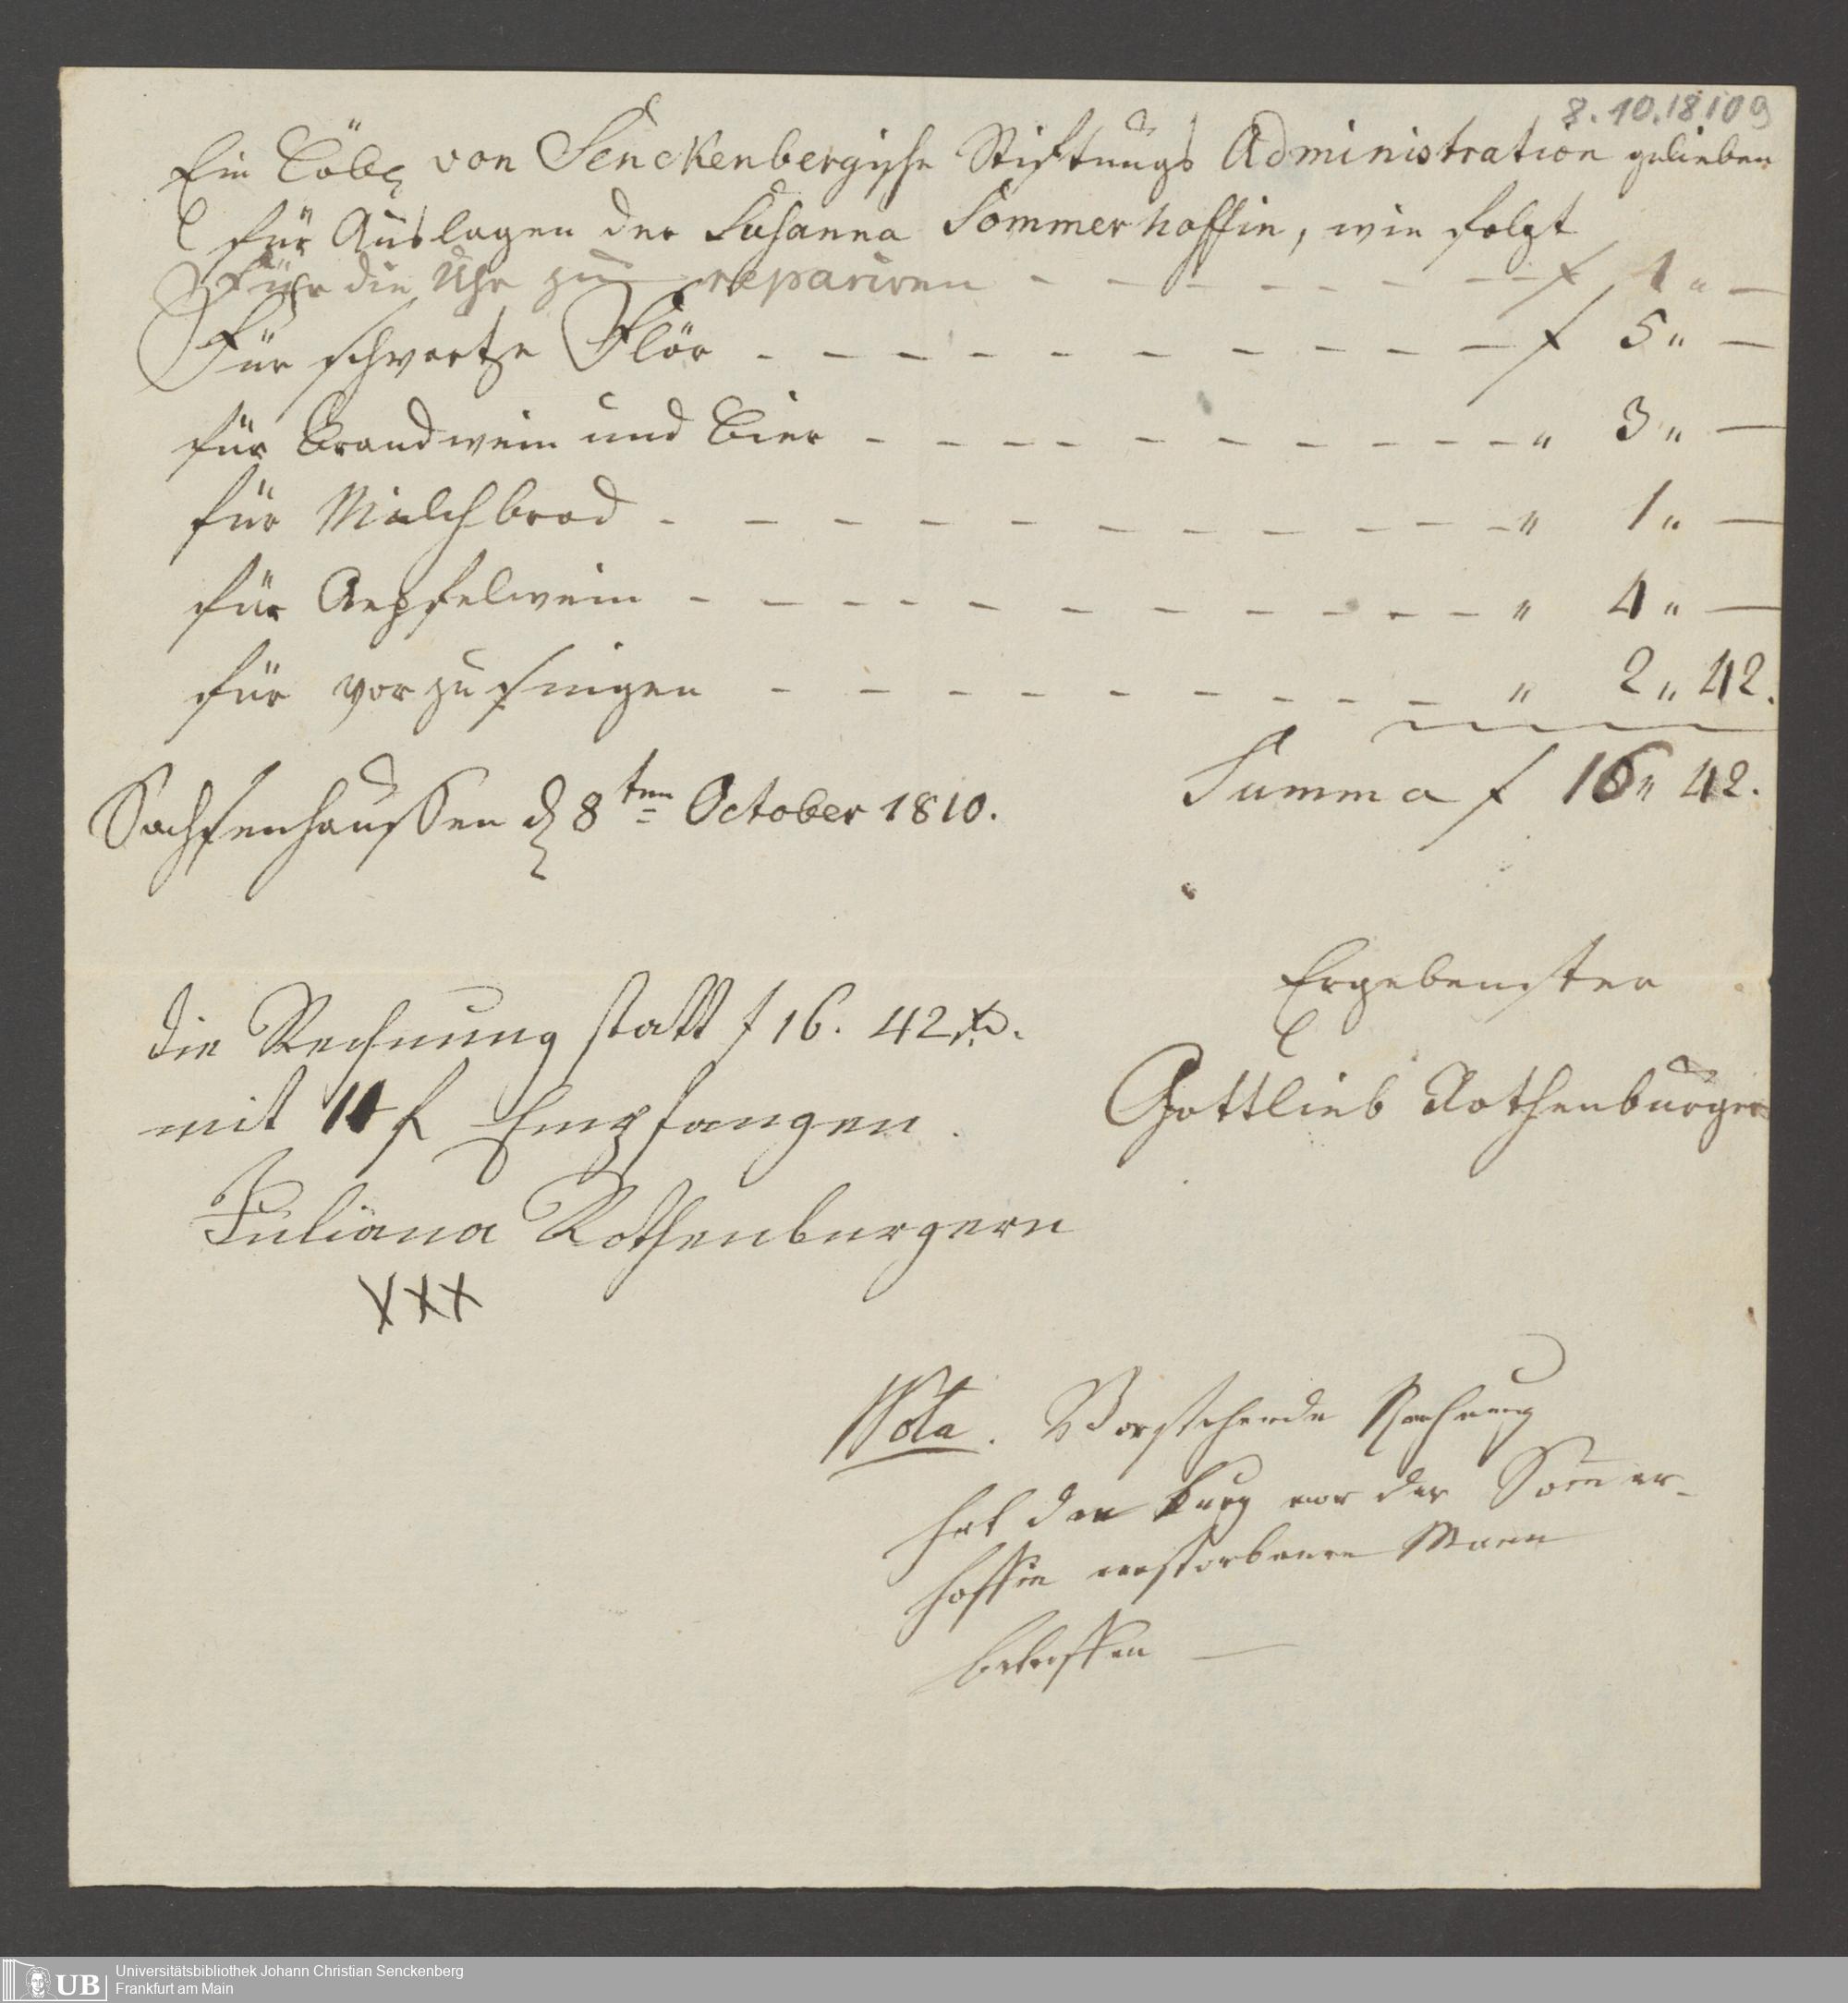 8.10.1810 9
Ein Löbl. von Senckenbergische Stiftungs Administration gelieben
für Auslagen der Susanna Sommerhoffin, wie folgt
Für die Uhr zu repariren - - - - - - - f 1 " —
Für schwartze Flör - - - - - - - - - - - f 5 " —
für Brandwein und Bier - - - - - - - - - - " 3 " —
für Milchbrod - - - - - - - - - - - " 1 " —
für Aepfelwein - - - - - - - - - - - " 4 " —
für vorzusingen - - - - - - - - - " 2 " 42.
Summa f 16 " 42.
Sachsenhaussen d 8ten October 1810.
Ergebenster
Gottlieb Rothenburger
die Rechnung statt f 16. 42 xr.
mit 11 f Empfangen.
Juliana Rothenburgern
XXX
Nota. Vorstehende Rechnung
hat den der Somer-
hoffin verstorbenen Mann
betroffen —
UB Universitätsbibliothek Johann Christian Senckenberg
Frankfurt am Main